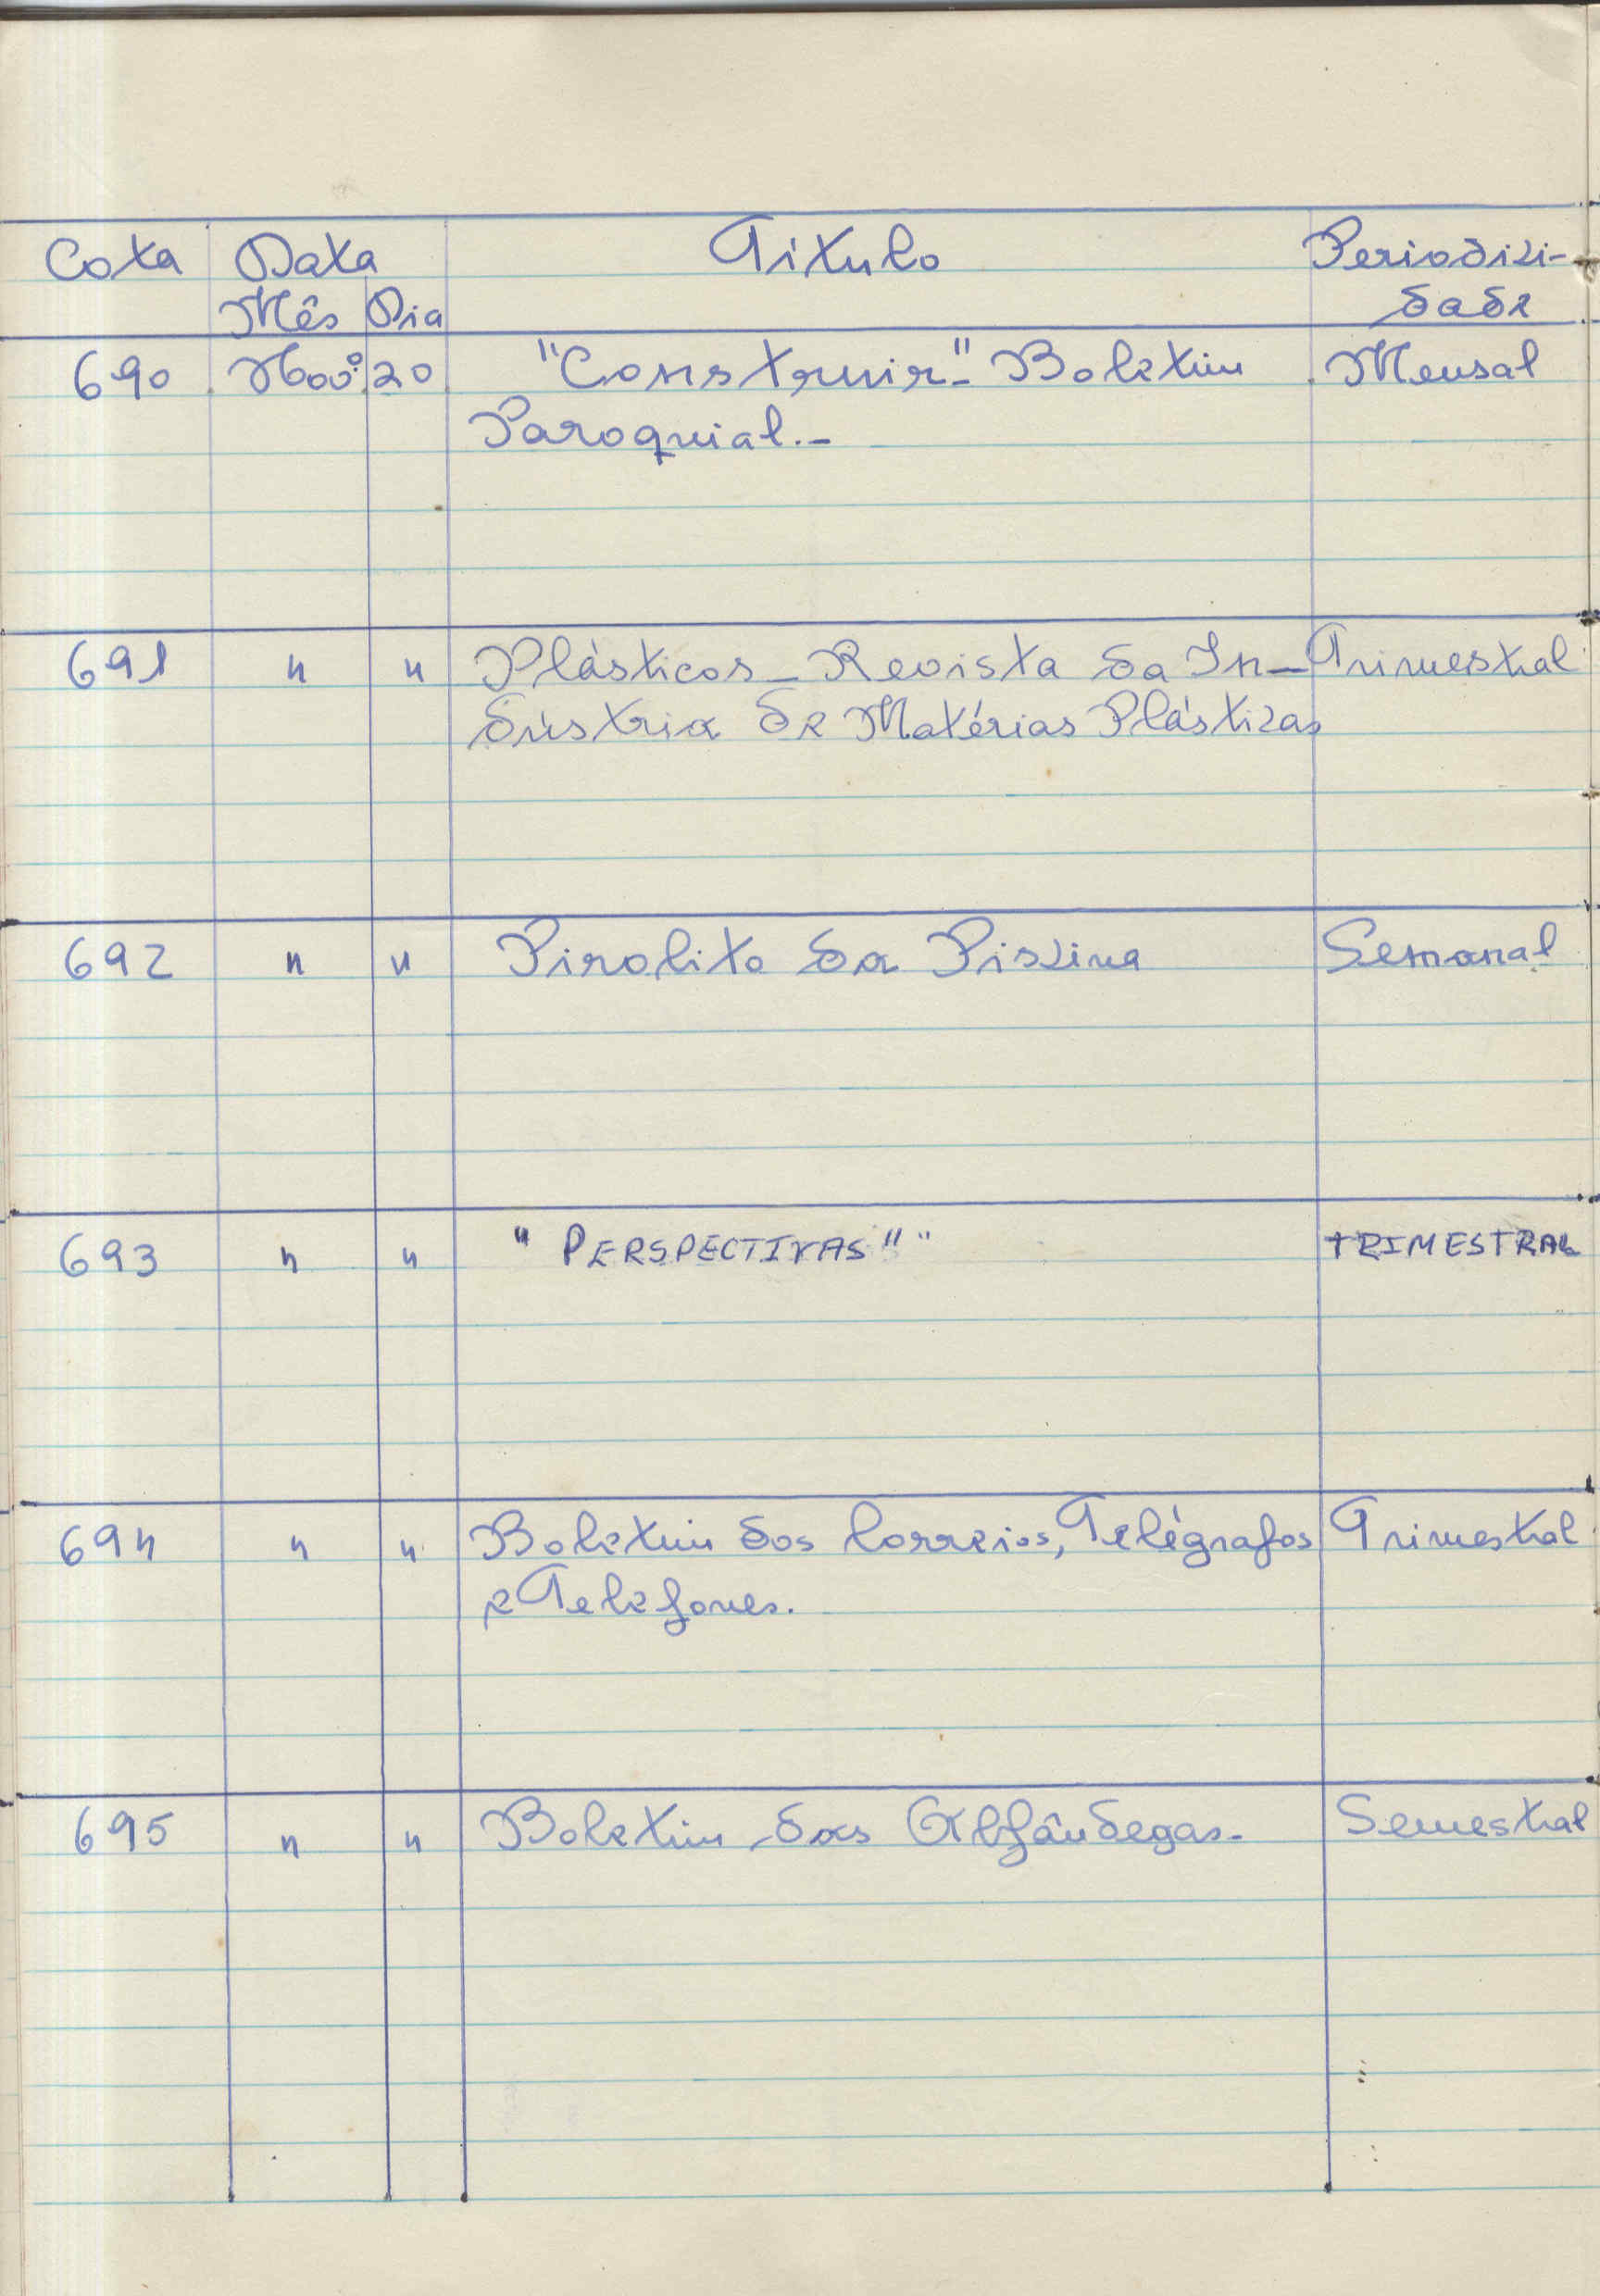 Cota Data Título Periodici-
Mês Dia dade
690 Novº. 20 "Construir"- Boletim Mensal
Paroquial.-
691 " " Plásticos - Revista da In- Trimestral
dústria de Matérias Plásticas
692 " " Pirolito da Piscina Semanal
693 " " "PERSPECTIVAS" " TRIMESTRAL
694 " " Boletim dos Correios, Telégrafos Trimestral
e Telefones.
695 " " Boletim das Alfândegas.- Semestral